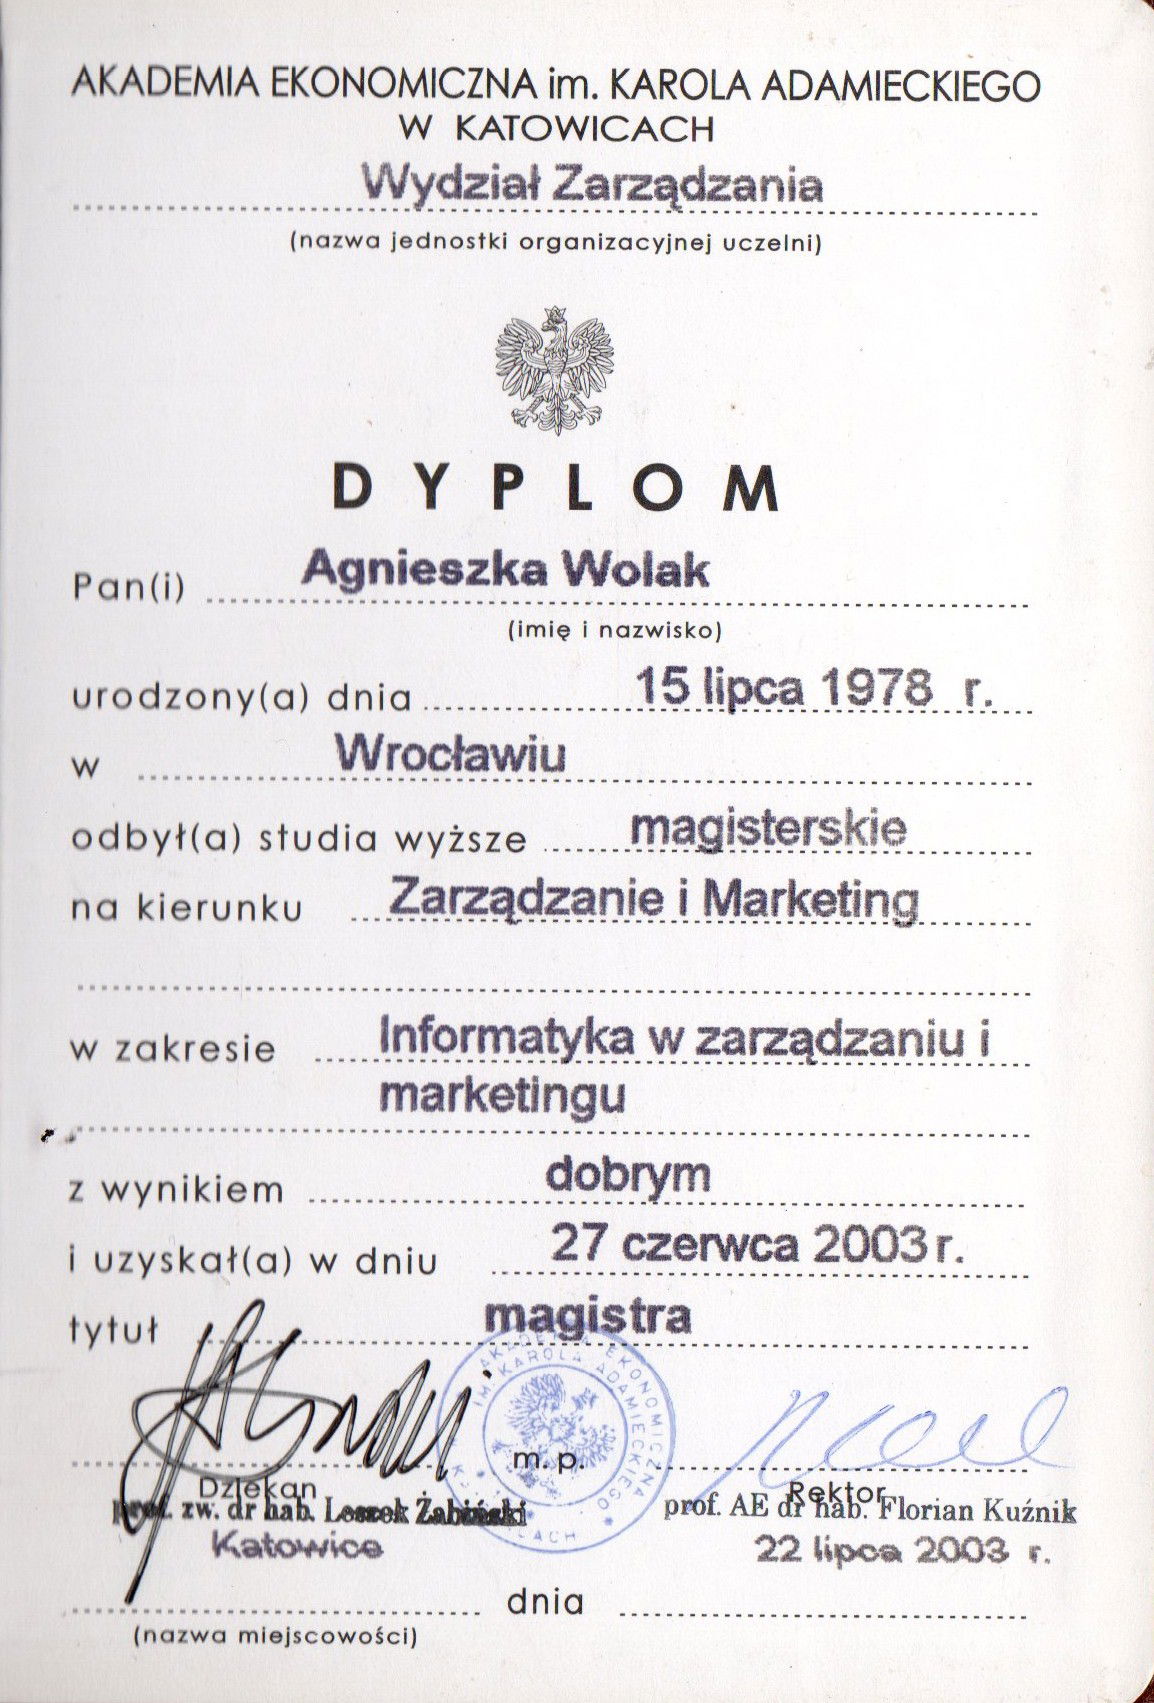 AKADEMIA EKONOMICZNA im. KAROLA ADAMIECKIEGO
W KATOWICACH
Wydział Zarządzania
(nazwa jednostki organizacyjnej uczelni)
DYPLOM
Pan(i) Agnieszka Wolak
(imię i nazwisko)
urodzony(a) dnia 15 lipca 1978 r.
w Wrocławiu
odbył(a) studia wyższe magisterskie
na kierunku Zarządzanie i Marketing
w zakresie Informatyka w zarządzaniu i
marketingu
z wynikiem dobrym
i uzyskał(a) w dniu 27 czerwca 2003 r.
tytuł magistra
AKADEMIA EKONOMICZNA
IM. KAROLA ADAMIECKIEGO
m.p.
Dziekan Rektor
prof. zw. dr hab. Leszek Żabiński prof. AE dr hab. Florian Kuźnik
Katowice 22 lipca 2003 r.
dnia
(nazwa miejscowości)